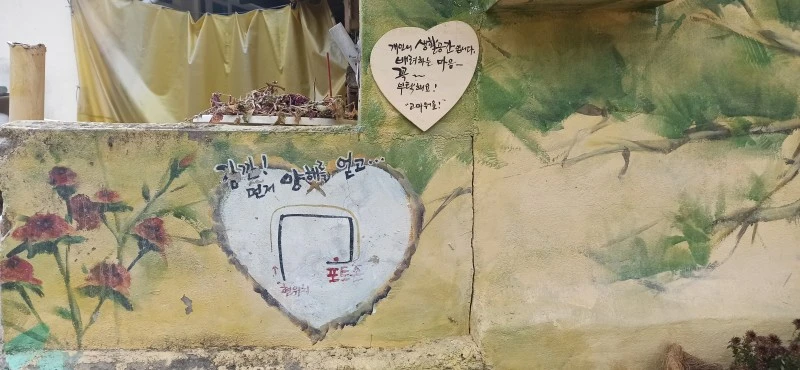 개인의 생활공간입니다.
배려하는 마음~
꼭~
부탁해요!
"고마워요!"
잠깐!
먼저 양해를 얻고...
포토존
현위치